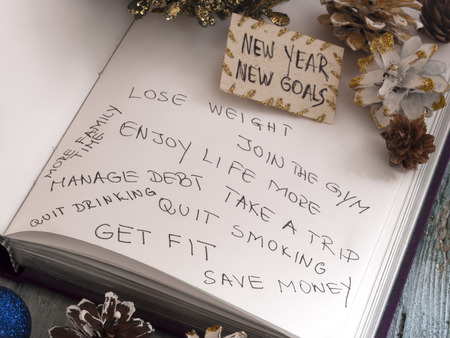 NEW YEAR
NEW GOALS
LOSE WEIGHT
JOIN THE GYM
ENJOY LIFE MORE
MORE FAMILY
TIME
MANAGE DEBT
TAKE A TRIP
QUIT DRINKING
QUIT SMOKING
GET FIT
SAVE MONEY